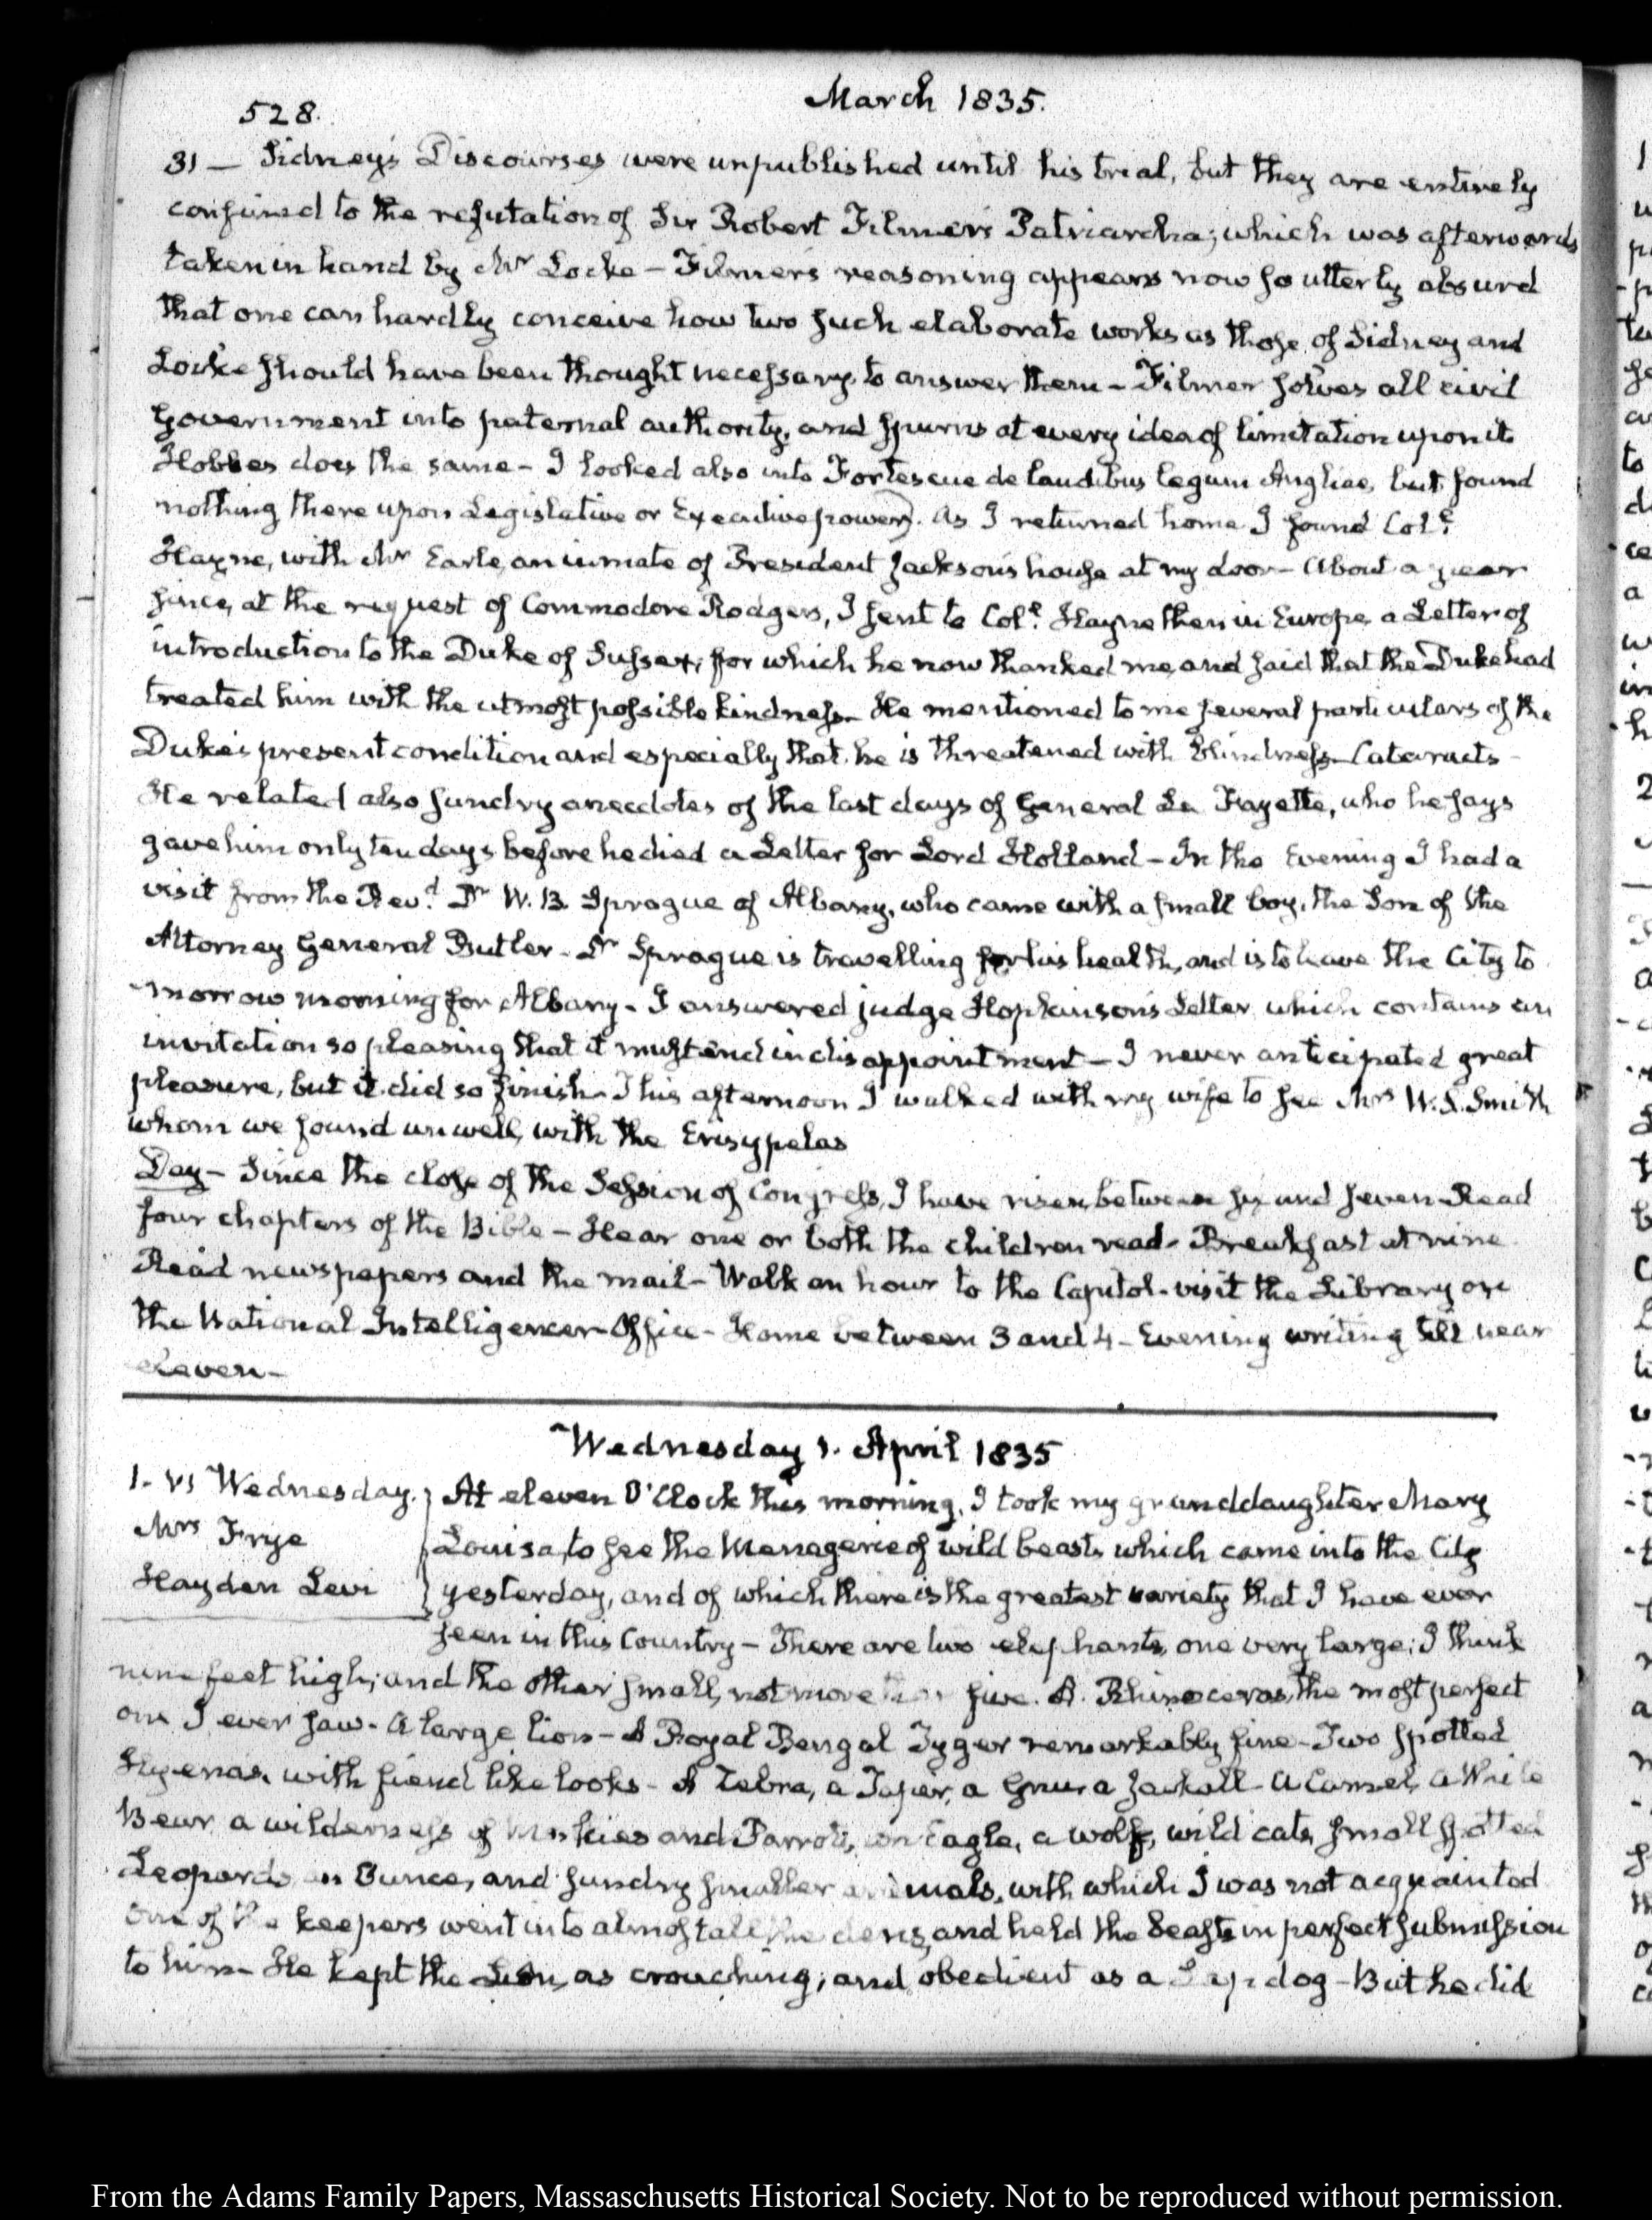 528.
March 1835.
31 — Sidney's Discourses were unpublished until his trial, but they are entirely
confined to the refutation of Sir Robert Filmer's Patriarcha; which was afterwards
taken in hand by Mr Locke — Filmer's reasoning appears now so utterly absurd
that one can hardly conceive how two such elaborate works as those of Sidney and
Locke should have been thought necessary to answer them — Filmer solves all civil
Government into paternal authority, and spurns at every idea of limitation upon it
Hobbes does the same — I looked also into Fortescue de laudibus legum Angliae, but found
nothing there upon Legislative or Executive powers. As I returned home I found Col.l
Hayne, with Mr Earle, an inmate of President Jackson's house at my door — About a year
since, at the request of Commodore Rodgers, I sent to Col.l Hayne then in Europe a Letter of
introduction to the Duke of Sussex; for which he now thanked me, and said that the Duke had
treated him with the utmost possible kindness — He mentioned to me several particulars of the
Duke's present condition and especially that he is threatened with Blindness — Cataracts —
He related also sundry anecdotes of the last days of General La Fayette, who he says
gave him only ten days before he died a Letter for Lord Holland — In the Evening I had a
visit from the Rev.d Dr W. B. Sprague of Albany, who came with a small boy, the Son of the
Attorney General Butler — Dr Sprague is travelling for his health, and is to leave the City to
morrow morning for Albany — I answered judge Hopkinson's Letter which contains an
invitation so pleasing that it must end in disappointment — I never anticipated great
pleasure, but it did so finish — This afternoon I walked with my wife to see Mrs W. S. Smith
whom we found unwell, with the Erisypelas
Day — Since the close of the Session of Congress, I have risen between six and seven — Read
four chapters of the Bible — Hear one or both the children read — Breakfast at nine
Read newspapers and the mail — Walk an hour to the Capitol — visit the Library or
the National Intelligencer Office — Home between 3 and 4 — Evening writing till near
eleven —
Wednesday 1. April 1835
1. VI Wednesday.
Mrs Frye
Hayden Levi
At eleven O'Clock this morning, I took my granddaughter Mary
Louisa, to see the Menagerie of wild beasts which came into the City
yesterday, and of which there is the greatest variety that I have ever
seen in this Country — There are two elephants, one very large; I think
nine feet high; and the other small, not more than five. A Rhinoceros, the most perfect
one I ever saw — A large lion — A Royal Bengal Tyger remarkably fine — Two spotted
Hyenas, with fiend like looks — A Zebra, a Taper, a Gnu, a Jackall — A Camel, a White
Bear a wilderness of Monkies and Parrots, an Eagle, a wolf, wild cats, small spotted
Leopards an Ounce, and sundry smaller animals, with which I was not acquainted
One of the keepers went into almost all the dens, and held the beasts in perfect submission
to him — He kept the Lion, as crouching, and obedient as a Lap dog — But he did
From the Adams Family Papers, Massachusetts Historical Society. Not to be reproduced without permission.